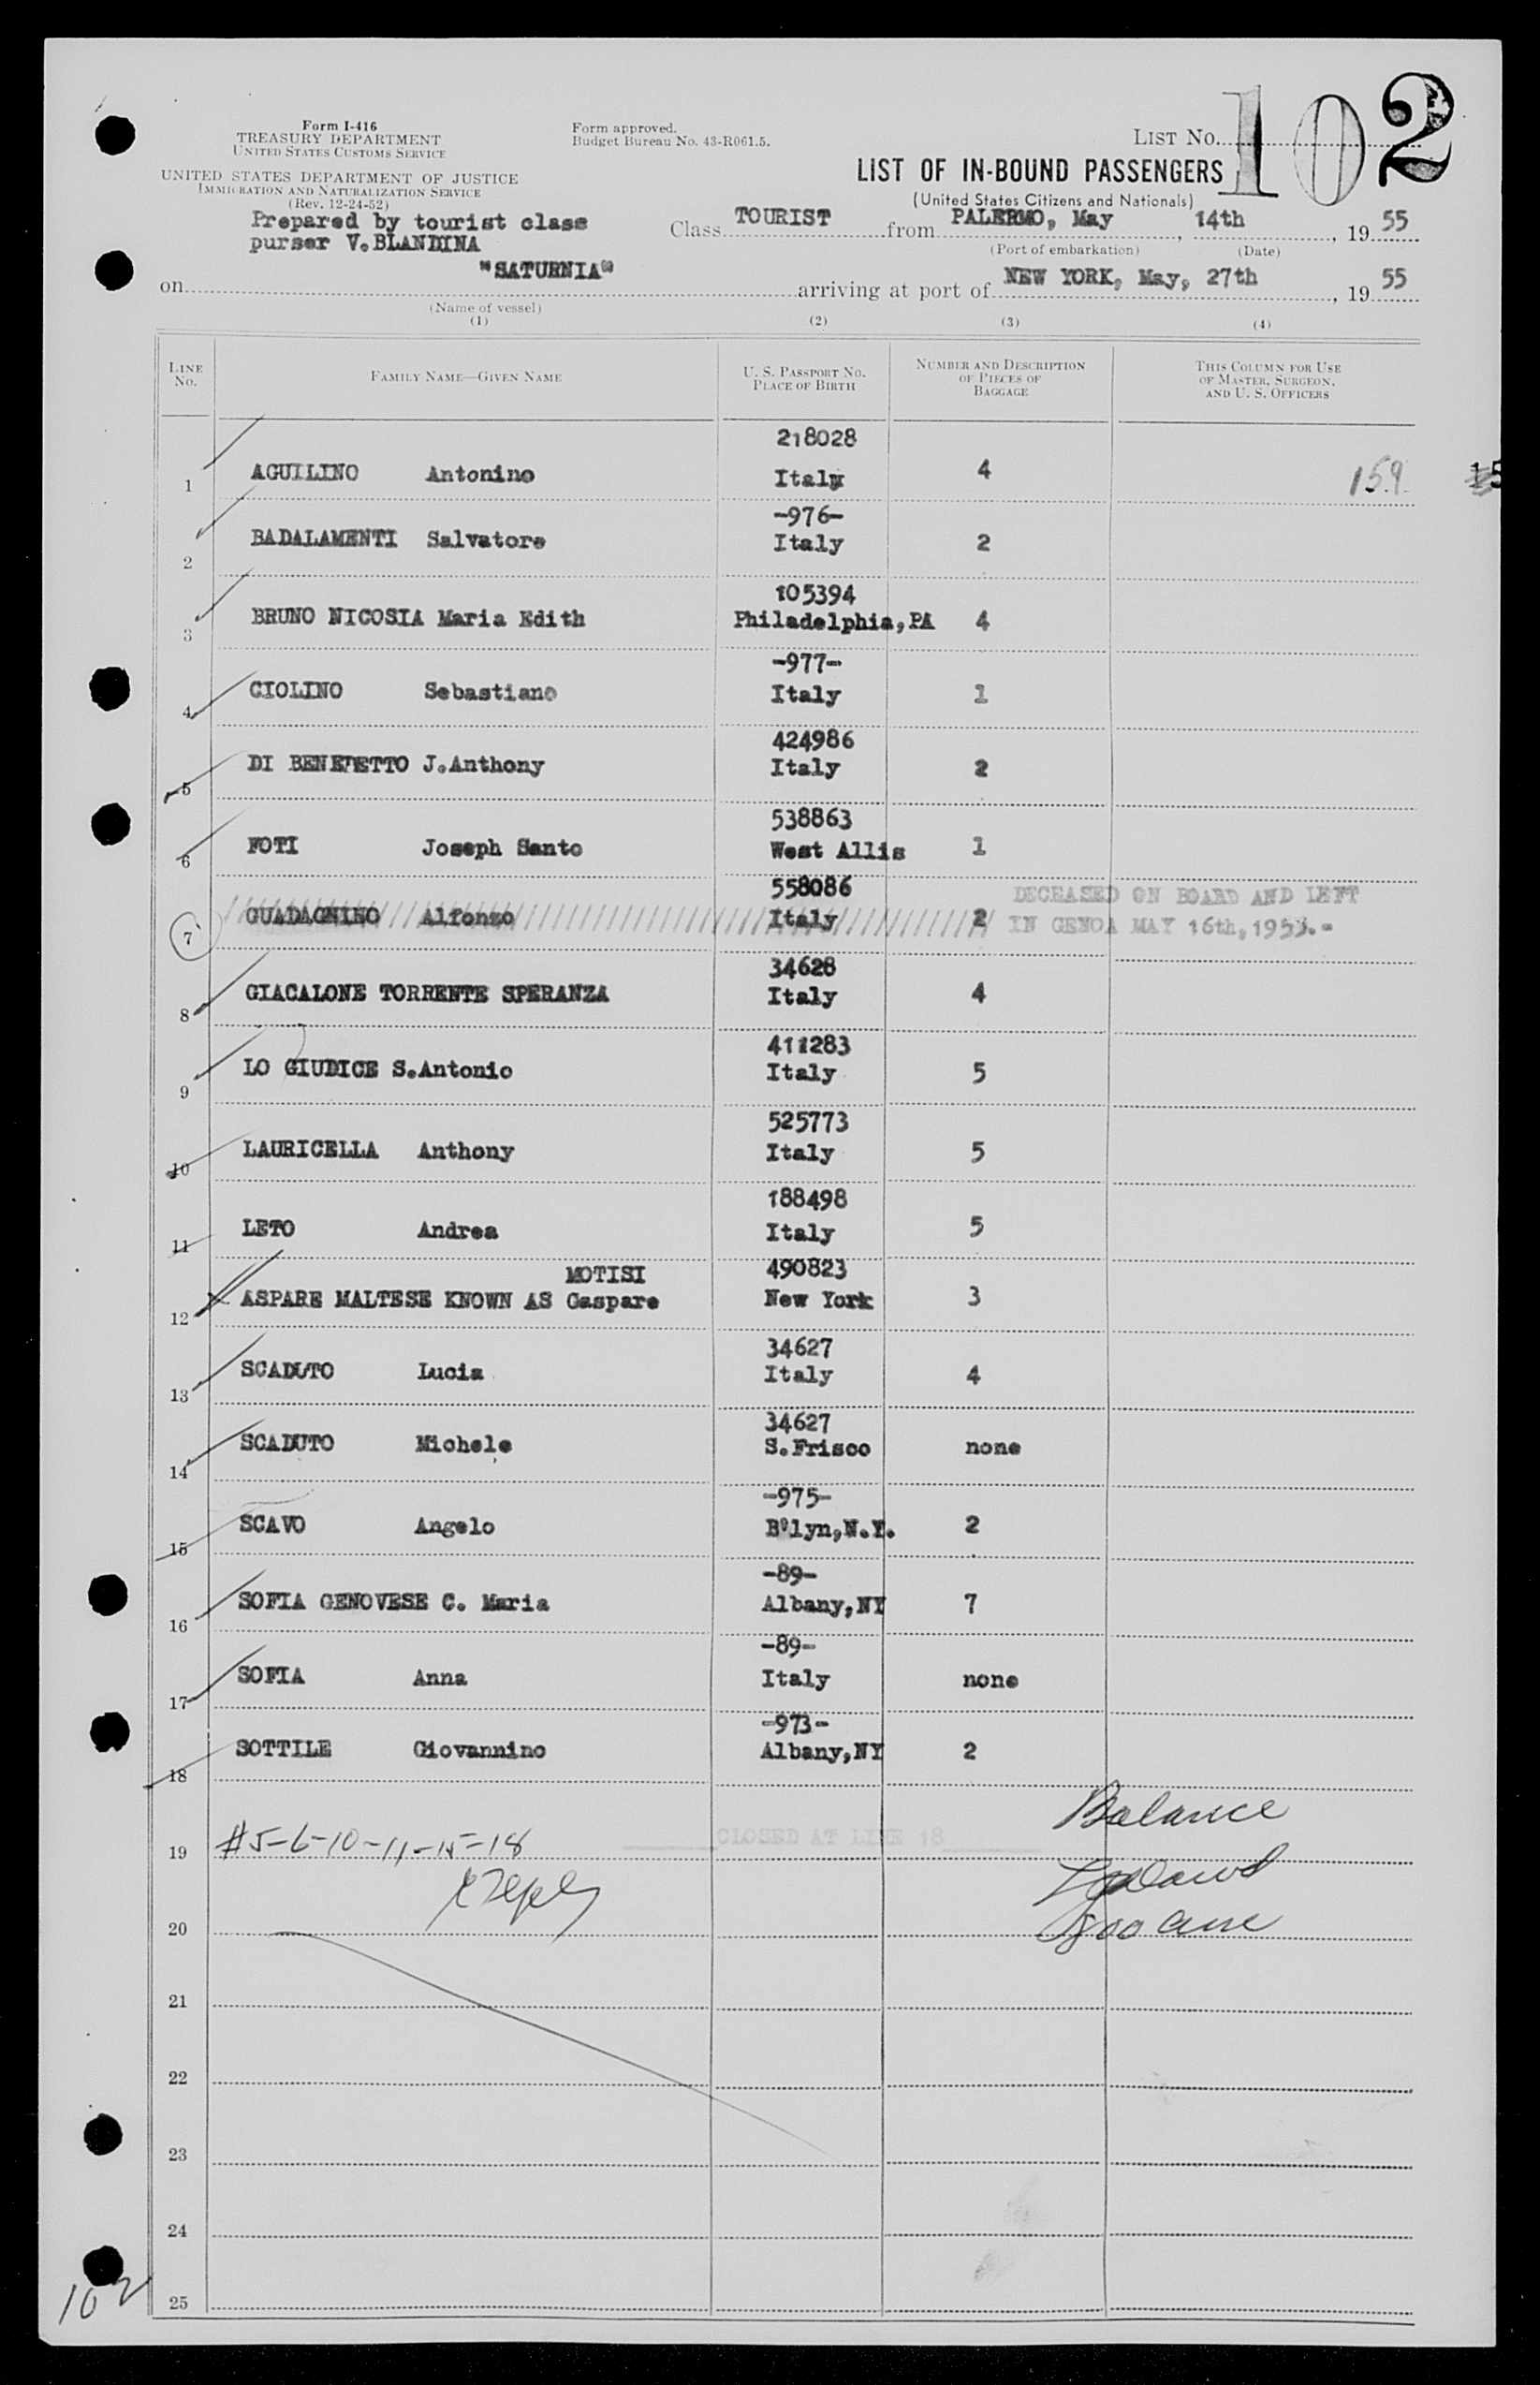 Form I-416
TREASURY DEPARTMENT
UNITED STATES CUSTOMS SERVICE
UNITED STATES DEPARTMENT OF JUSTICE
IMMIGRATION AND NATURALIZATION SERVICE
(Rev. 12-24-52)
Form approved.
Budget Bureau No. 43-R061.5.
LIST No. 102
LIST OF IN-BOUND PASSENGERS
(United States Citizens and Nationals)
Prepared by tourist class
purser V.BLANDINA
Class TOURIST from PALERMO, May, 14th, 19 55
(Port of embarkation) (Date)
on "SATURNIA" arriving at port of NEW YORK, May, 27th, 19 55
(Name of vessel)
(1) (2) (3) (4)
LINE No. FAMILY NAME—GIVEN NAME U. S. PASSPORT No. PLACE OF BIRTH NUMBER AND DESCRIPTION OF PIECES OF BAGGAGE THIS COLUMN FOR USE OF MASTER, SURGEON, AND U. S. OFFICERS
218028
1 AGUILINO Antonino Italy 4 159 15
-976-
2 BADALAMENTI Salvatore Italy 2
105394
3 BRUNO NICOSIA Maria Edith Philadelphia,PA 4
-977-
4 CIOLINO Sebastiano Italy 1
424986
5 DI BENEDETTO J.Anthony Italy 2
538863
6 FOTI Joseph Santo West Allis 1
558086 DECEASED ON BOARD AND LEFT
7 GUADAGNINO Alfonso Italy 2 IN GENOA MAY 16th,1953.-
34628
8 GIACALONE TORRENTE SPERANZA Italy 4
411283
9 LO GIUDICE S.Antonio Italy 5
525773
10 LAURICELLA Anthony Italy 5
188498
11 LETO Andrea Italy 5
MOTISI 490823
12 ASPARE MALTESE KNOWN AS Gaspare New York 3
34627
13 SCADUTO Lucia Italy 4
34627
14 SCADUTO Michele S.Frisco none
-975-
15 SCAVO Angelo B'lyn,N.Y. 2
-89-
16 SOFIA GENOVESE C. Maria Albany,NY 7
-89-
17 SOFIA Anna Italy none
-973-
18 SOTTILE Giovannino Albany,NY 2
Balance
19 #5-6-10-11-15-18 CLOSED AT LINE 18
20
21
22
23
24
25
102